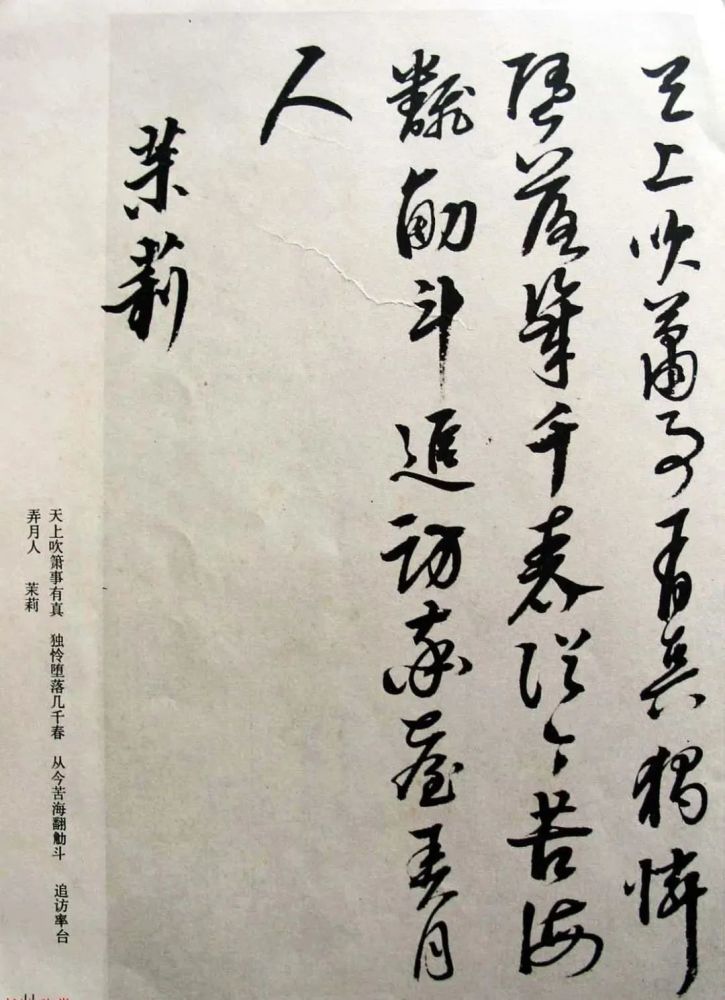 天上吹簫事有真獨憐
墮落幾千春從今苦海
飜觔斗追訪率臺弄月
人
茉莉
天上吹箫事有真 独怜堕落几千春 从今苦海翻觔斗 追访率台
弄月人 茉莉